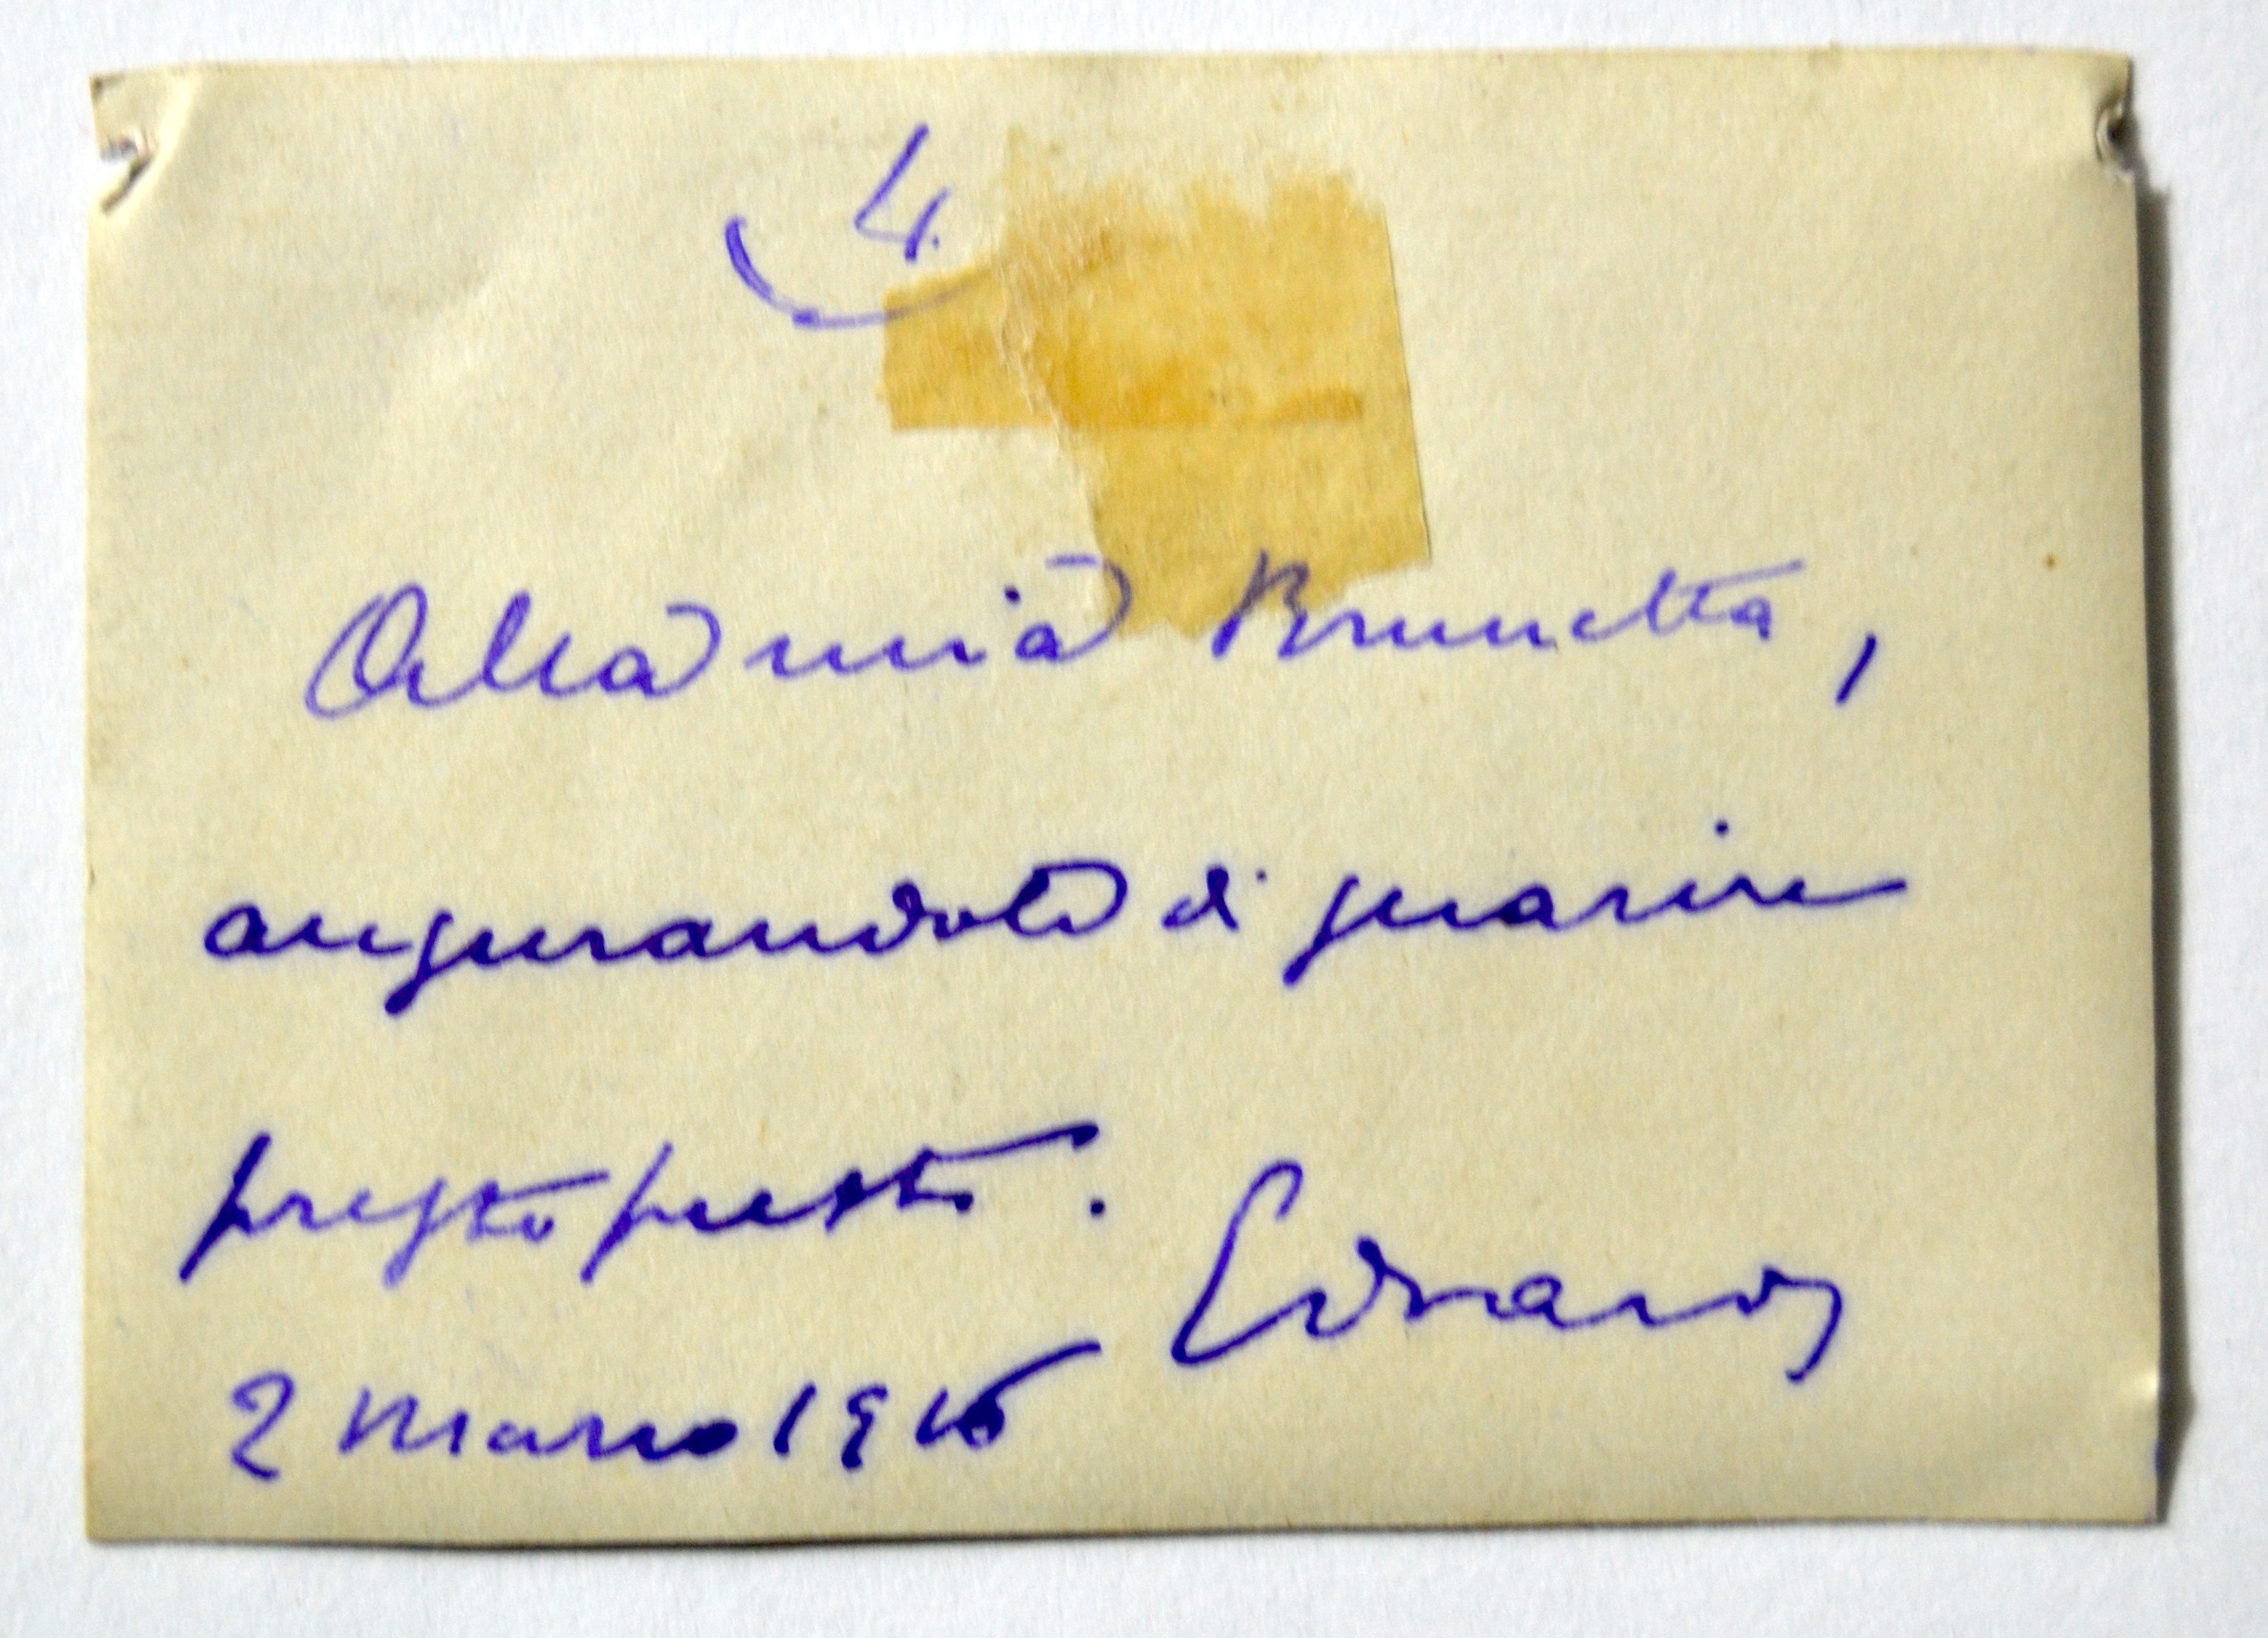 4
Alla mia Brunetta,
augurandole di guarire
presto presto.
Edoardo
2 marzo 19